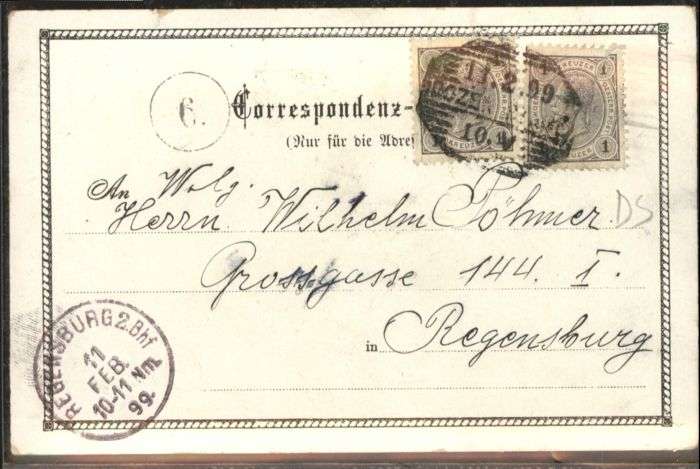 6.
Correspondenz-
(Nur für die Adres
11.2.99
10.
KREUZER
1
1
An Wolg.
Herrn Wilhelm Pöhmer
DS
Grossgasse 144. I.
in Regensburg
REGENSBURG 2. Bhf
11
FEB.
10-11 Nm.
99.